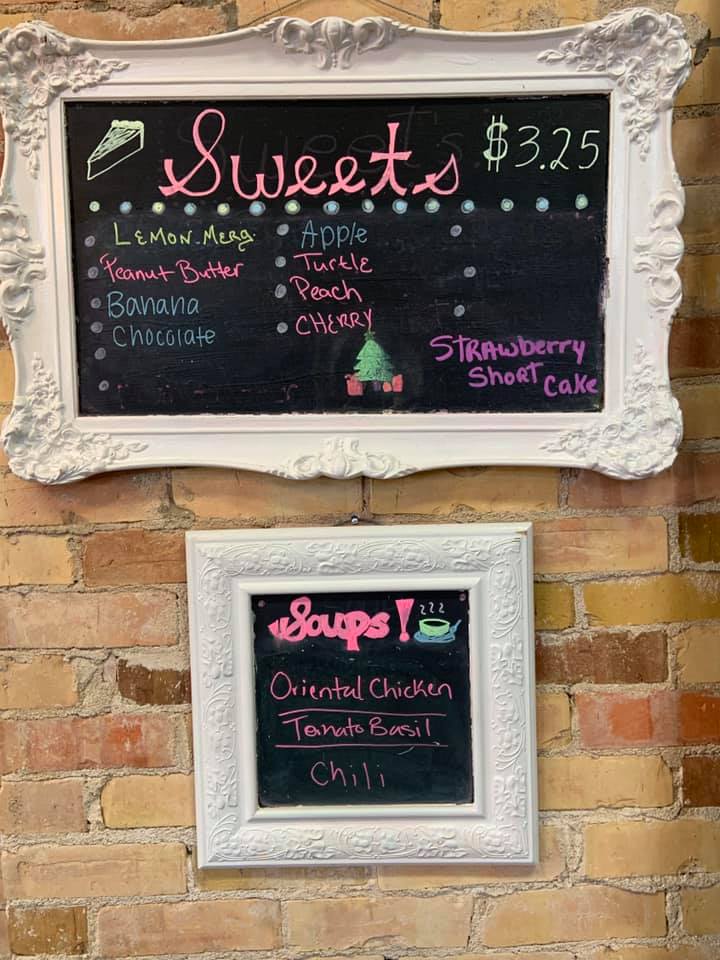 Sweets $3.25
LEMON Merg.
Peanut Butter
Banana
Chocolate
Apple
Turtle
Peach
CHERRY
STRAWberry
Short Cake
Soups!
Oriental Chicken
Tomato Basil
Chili